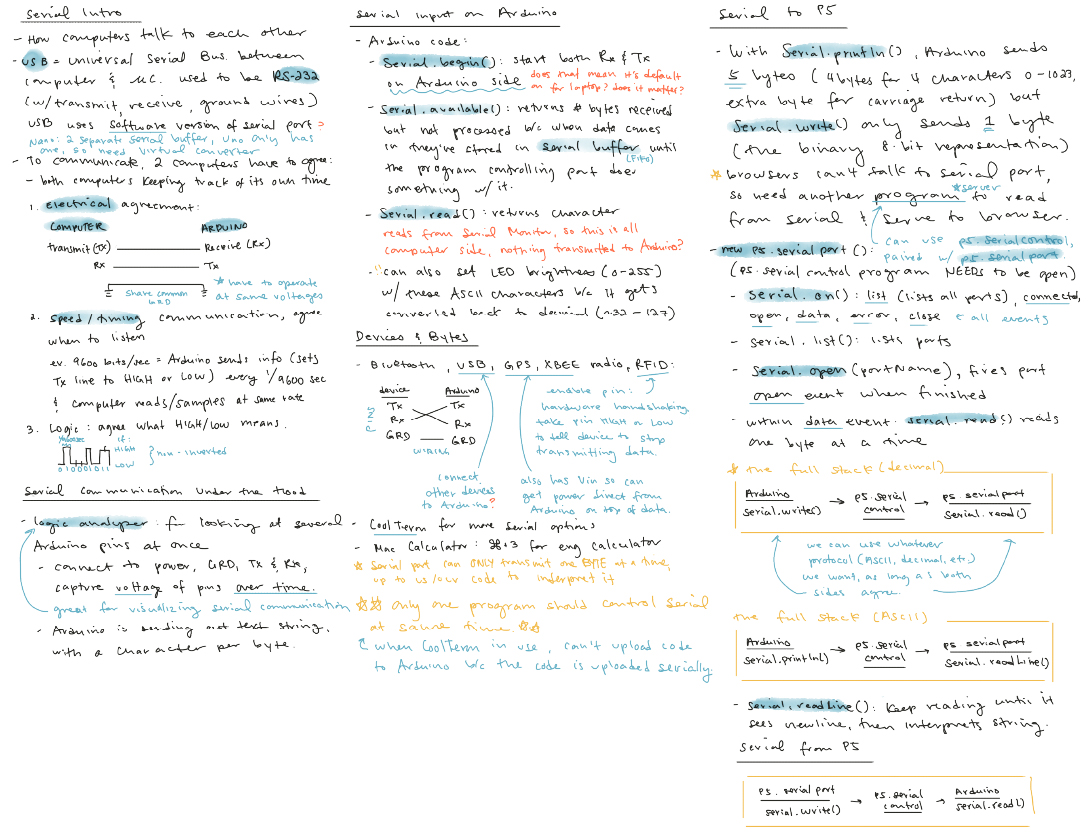 Serial Intro
- How computers talk to each other
- USB = Universal Serial Bus. between
computer & MC. used to be RS-232
(w/transmit, receive, ground wires)
USB uses software version of serial port
Nano: 2 separate serial buffer, Uno only has
one, so need virtual converter
- To communicate 2 computers have to agree:
- both computers keeping track of its own time
1. Electrical agreement:
COMPUTER ARDUINO
transmit (TX) Receive (RX)
Rx Tx
Share common
GRD
* have to operate
at same voltages
2. Speed/timing communication, agree
when to listen
ex. 9600 bits/sec = Arduino sends info (sets
Tx line to HIGH or LOW) every 1/9600 sec
& computer reads/samples at same rate
3. Logic: agree what HIGH/LOW means.
1/9600sec
if:
HIGH
LOW
non-inverted
Serial Communication Under the Hood
- logic analyzer: for looking at several
Arduino pins at once
- connect to power, GRD, TX & RX,
capture voltage of pins over time.
great for visualizing serial communication
- Arduino is sending out text string,
with a character per byte.
Serial Input on Arduino
- Arduino code:
- Serial.begin(): start both Rx & Tx
on Arduino side
does that mean it's default
on for laptop? does it matter?
- Serial.available(): returns # bytes received
but not processed b/c when data comes
in they're stored in serial buffer until
(FIFO)
the program controlling port does
something w/ it.
- Serial.read(): returns character
reads from Serial Monitor, so this is all
computer side, nothing transmitted to Arduino?
- !! can also set LED brightness (0-255)
w/ these ASCII characters b/c it gets
converted back to decimal (n32 - 127)
Devices & Bytes
- Bluetooth, USB, GPS, XBEE radio, RFID:
device Arduino
Tx Tx
Rx Rx
GRD GRD
WIRING
enable pin:
hardware handshaking
take pin HIGH or LOW
to tell device to stop
transmitting data.
connect
other devices
to Arduino?
also has Vin so can
get power direct from
Arduino on top of data.
- CoolTerm for more serial options
- Mac Calculator: ⌘+3 for eng calculator
☆ serial port can ONLY transmit one BYTE at a time,
up to us/our code to interpret it
☆☆ only one program should control serial
at same time. ☆☆
when CoolTerm in use, can't upload code
to Arduino b/c the code is uploaded serially.
Serial to P5
- With Serial.println(), Arduino sends
5 bytes (4 bytes for 4 characters 0-1023,
extra byte for carriage return) but
Serial.write() only sends 1 byte
(the binary 8-bit representation)
☆ browsers can't talk to serial port,
*server
so need another program to read
from serial & serve to browser.
can use p5.serialcontrol,
paired w/ p5.serialport
- new p5.serialport():
(p5.serial control program NEEDS to be open)
- Serial.on(): list (lists all ports), connected,
open, data, error, close ← all events
- serial.list(): lists ports
- Serial.open(portName), fires port
open event when finished
- within data event: serial.read() reads
one byte at a time
* the full stack (decimal)
Arduino → p5.serial → p5.serialport
serial.write() control Serial.read()
we can use whatever
protocol (ASCII, decimal, etc.)
we want, as long as both
sides agree.
the full stack (ASCII)
Arduino → p5.serial → p5 serialport
serial.println() control Serial.readLine()
- serial.readLine(): keep reading until it
sees newline, then interprets string.
serial from P5
p5.serialport → p5.serial → Arduino
serial.write() control serial.read()